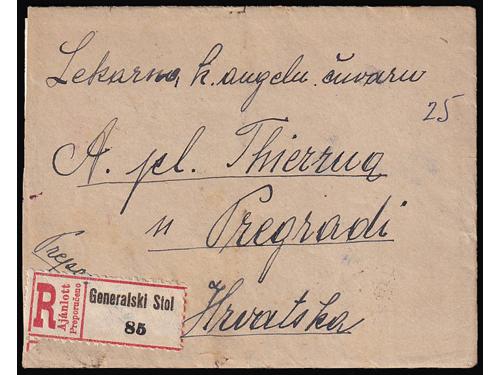 Lekarna k. angelu čuvaru
25
A. pl. Thierryq
u Pregradi
Prepo
Hrvatska
R Ajánlott Preporučeno Generalski Stol 85